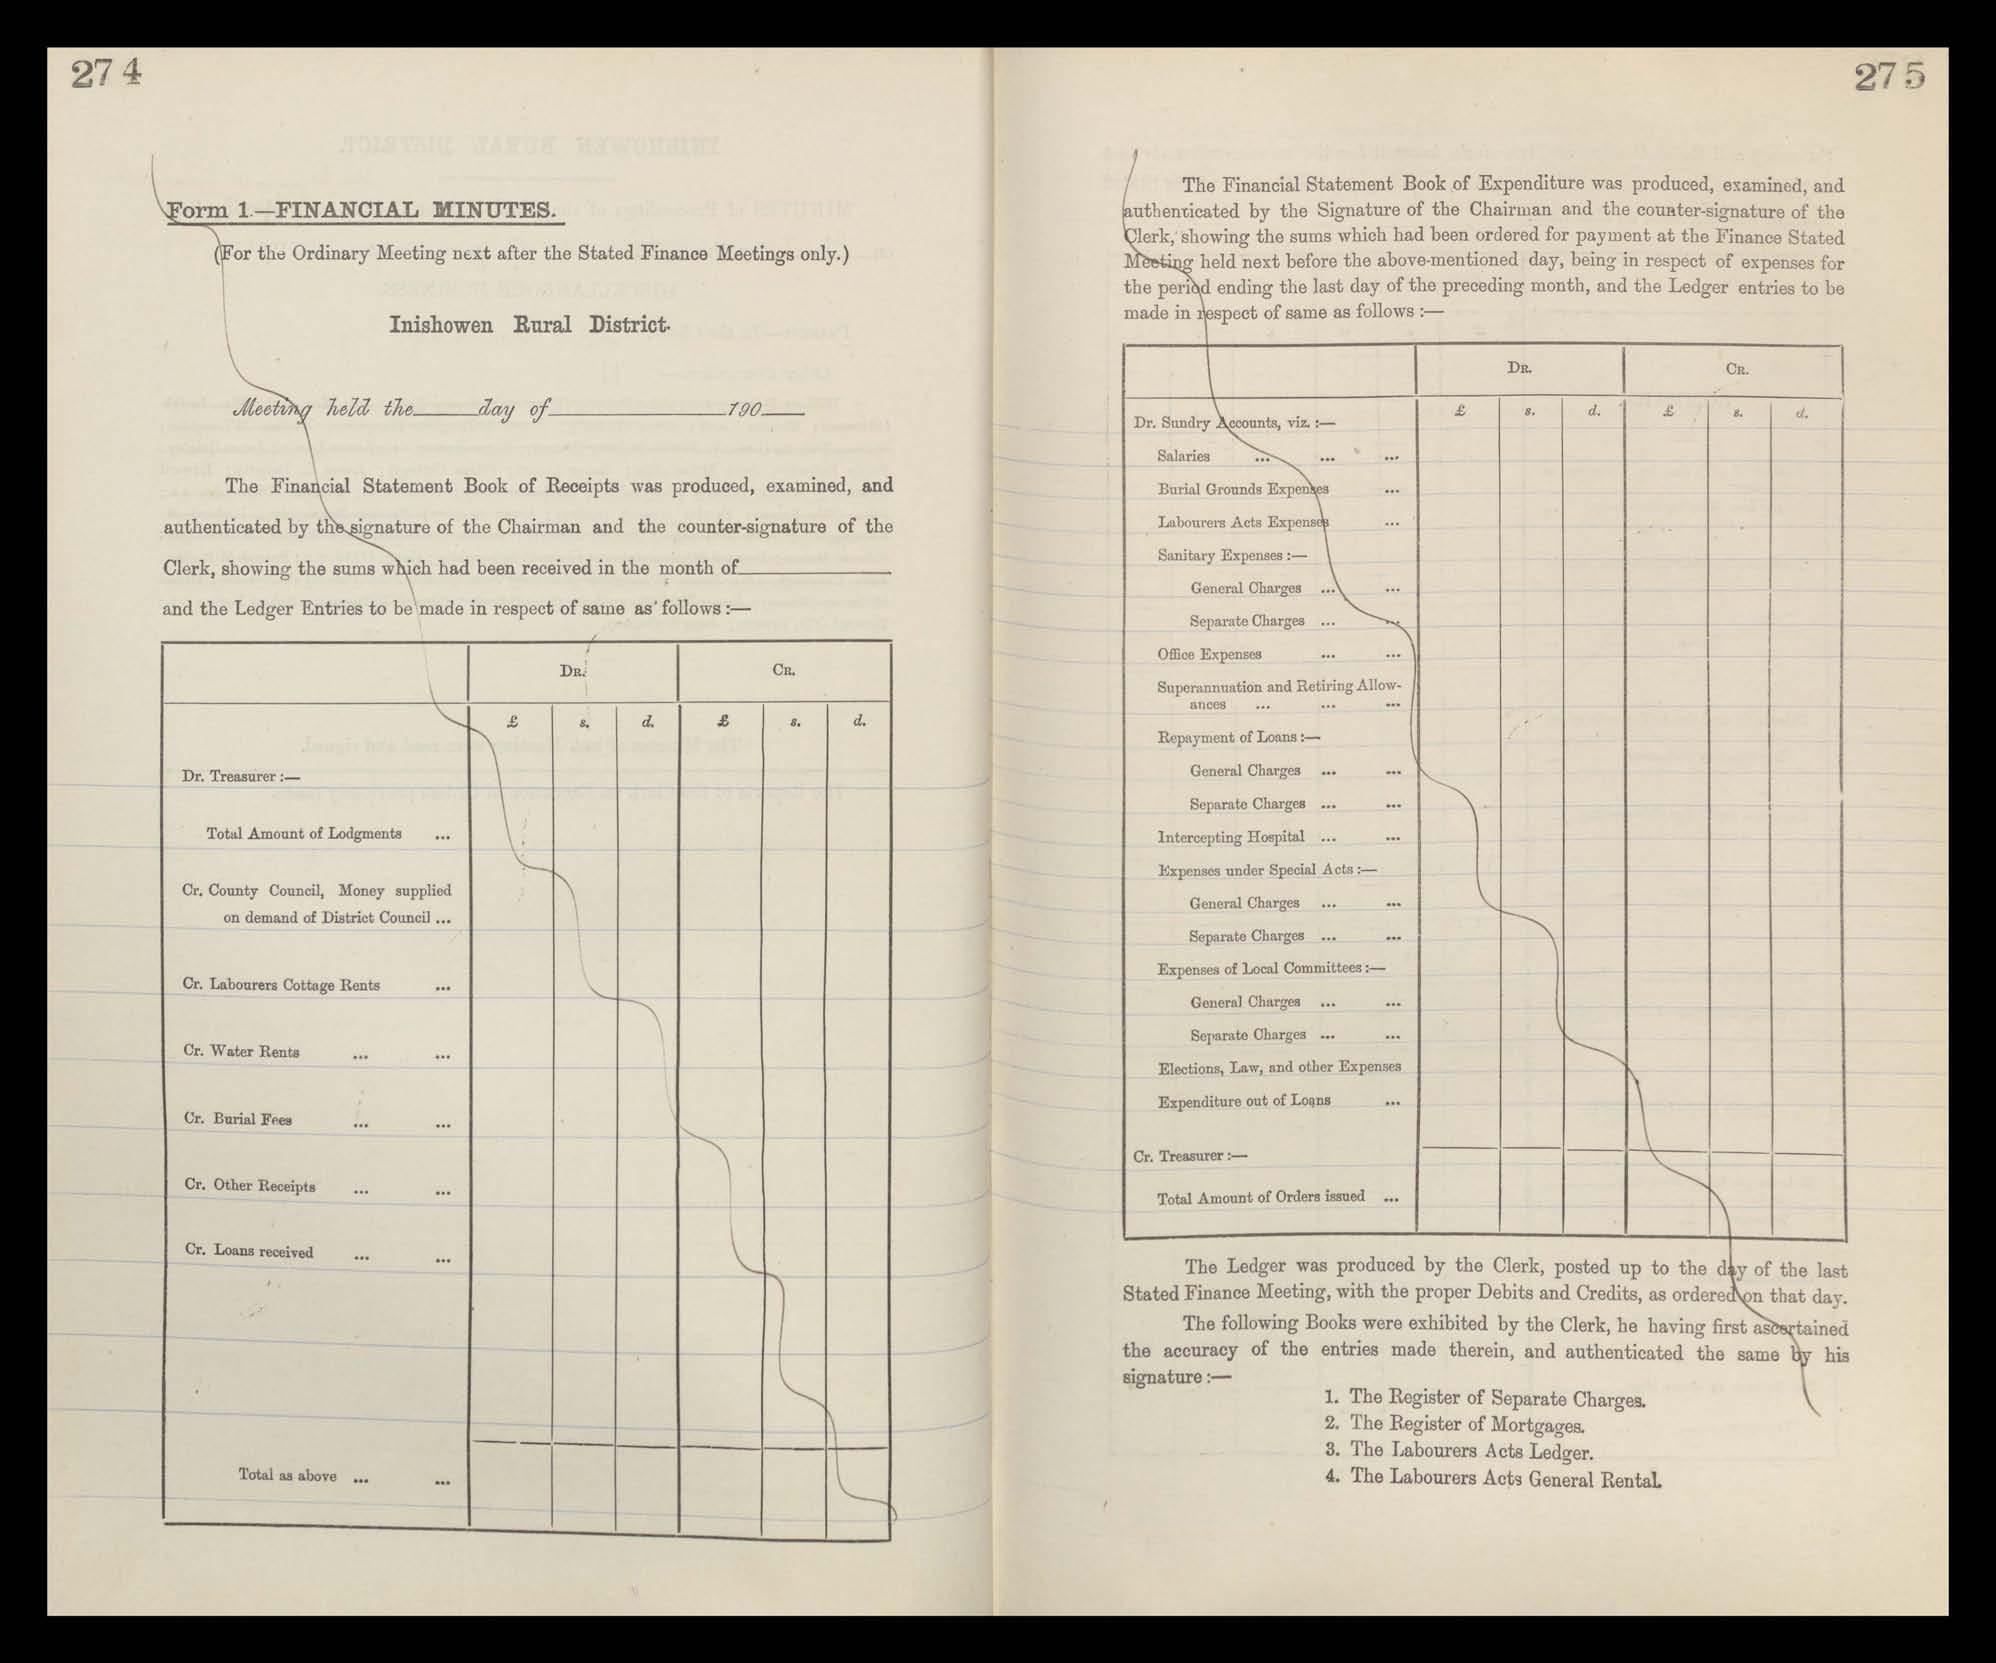 274
Form 1.—FINANCIAL MINUTES.
(For the Ordinary Meeting next after the Stated Finance Meetings only.)
Inishowen Rural District.
Meeting held the day of 190
The Financial Statement Book of Receipts was produced, examined, and
authenticated by the signature of the Chairman and the counter-signature of the
Clerk, showing the sums which had been received in the month of
and the Ledger Entries to be made in respect of same as follows :—
DR. CR.
£ s. d. £ s. d.
Dr. Treasurer :—
Total Amount of Lodgments ...
Cr. County Council, Money supplied
on demand of District Council ...
Cr. Labourers Cottage Rents ...
Cr. Water Rents ... ...
Cr. Burial Fees ... ...
Cr. Other Receipts ... ...
Cr. Loans received ... ...
Total as above ... ...
275
The Financial Statement Book of Expenditure was produced, examined, and
authenticated by the Signature of the Chairman and the counter-signature of the
Clerk, showing the sums which had been ordered for payment at the Finance Stated
Meeting held next before the above-mentioned day, being in respect of expenses for
the period ending the last day of the preceding month, and the Ledger entries to be
made in respect of same as follows :—
DR. CR.
£ s. d. £ s. d.
Dr. Sundry Accounts, viz. :—
Salaries ... ... ...
Burial Grounds Expenses ...
Labourers Acts Expenses ...
Sanitary Expenses :—
General Charges ... ...
Separate Charges ... ...
Office Expenses ... ...
Superannuation and Retiring Allow-
ances ... ... ...
Repayment of Loans :—
General Charges ... ...
Separate Charges ... ...
Intercepting Hospital ... ...
Expenses under Special Acts :—
General Charges ... ...
Separate Charges ... ...
Expenses of Local Committees :—
General Charges ... ...
Separate Charges ... ...
Elections, Law, and other Expenses
Expenditure out of Loans ...
Cr. Treasurer :—
Total Amount of Orders issued ...
The Ledger was produced by the Clerk, posted up to the day of the last
Stated Finance Meeting, with the proper Debits and Credits, as ordered on that day.
The following Books were exhibited by the Clerk, he having first ascertained
the accuracy of the entries made therein, and authenticated the same by his
signature :—
1. The Register of Separate Charges.
2. The Register of Mortgages.
3. The Labourers Acts Ledger.
4. The Labourers Acts General Rental.